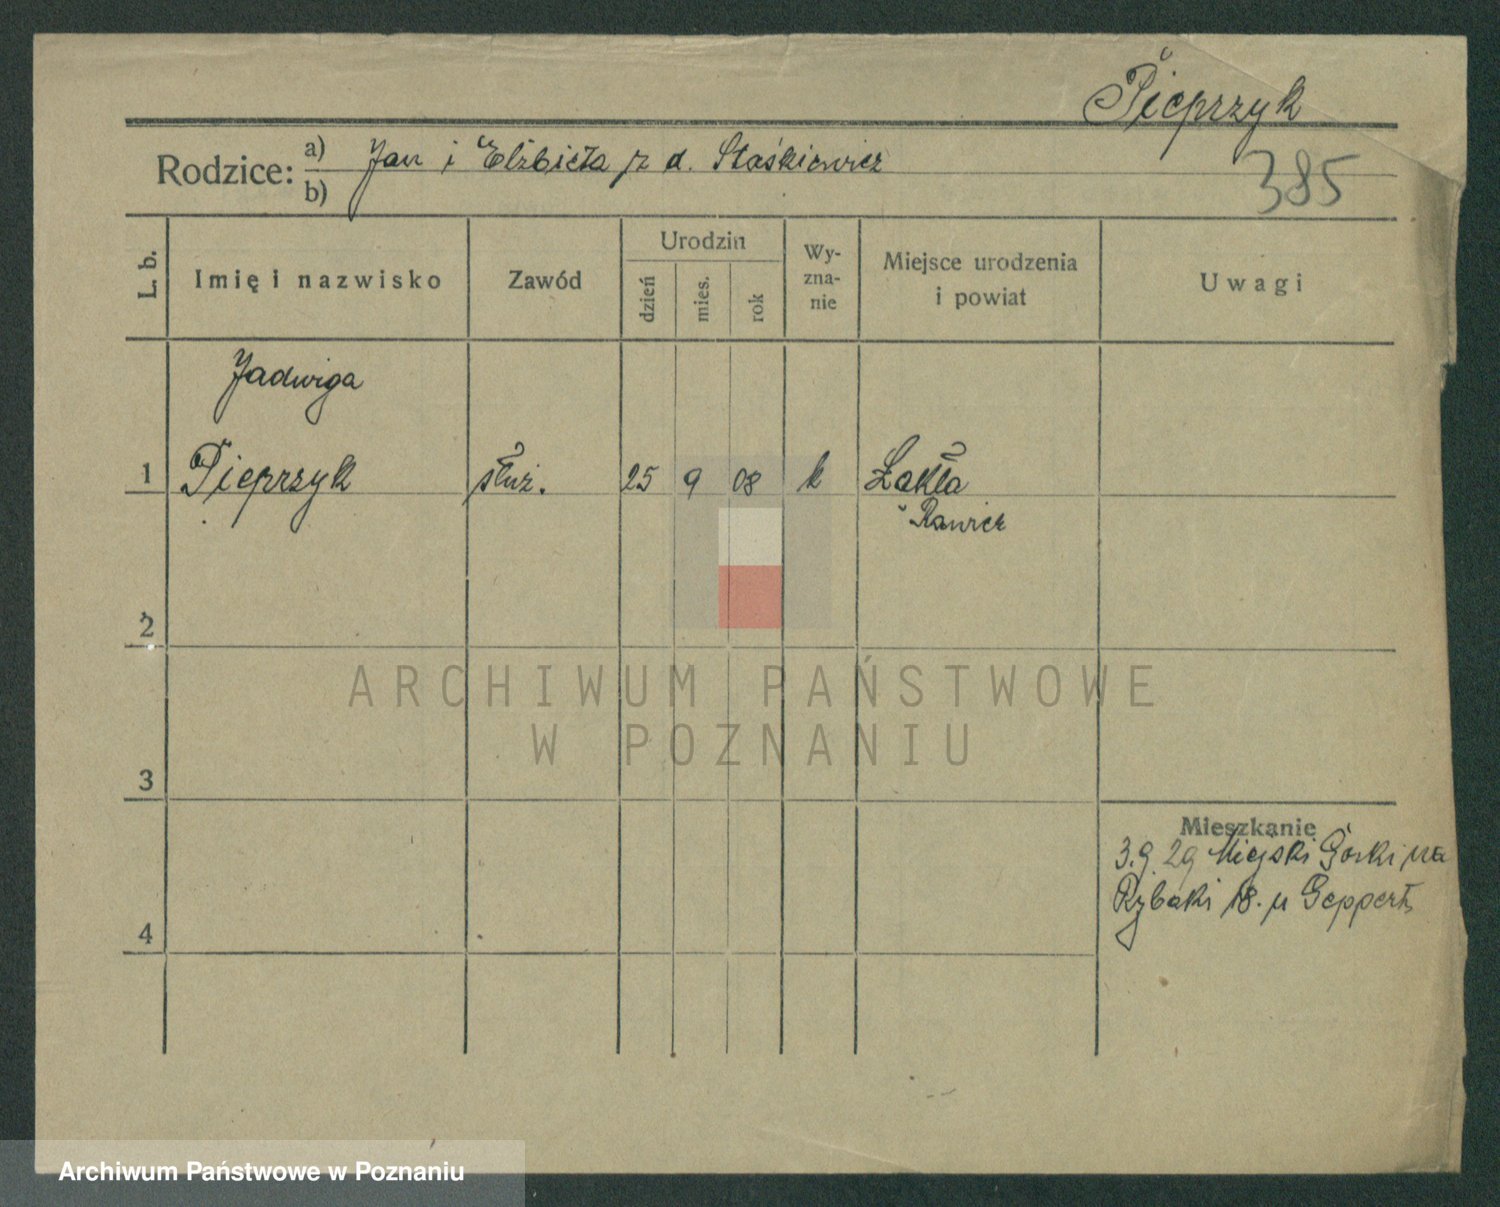 Pieprzyk
Rodzice: a) Jan i Elżbieta z d. Staśkiewicz
b)
385
L. b. Imię i nazwisko Zawód Urodzin dzień mies. rok Wy-zna-nie Miejsce urodzenia i powiat Uwagi
Jadwiga
1 Pieprzyk służ. 25 9 08 k Łąkta
Rawicz
2
ARCHIWUM PAŃSTWOWE
W POZNANIU
3
Mieszkanie
3.9.29 Miejski Górki na
Rybaki 18. u Geppert
4
Archiwum Państwowe w Poznaniu